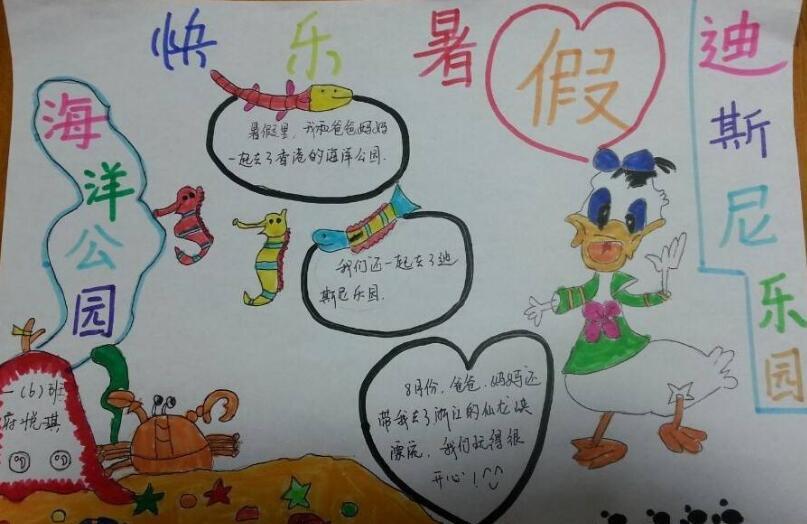 快乐暑假
海洋公园
迪斯尼乐园
暑假里，我和爸爸妈妈
一起去了香港的海洋公园.
我们还一起去了迪
斯尼乐园.
8月份，爸爸、妈妈还
带我去了浙江的仙龙峡
漂流，我们玩得很
开心！
一(6)班
悦琪